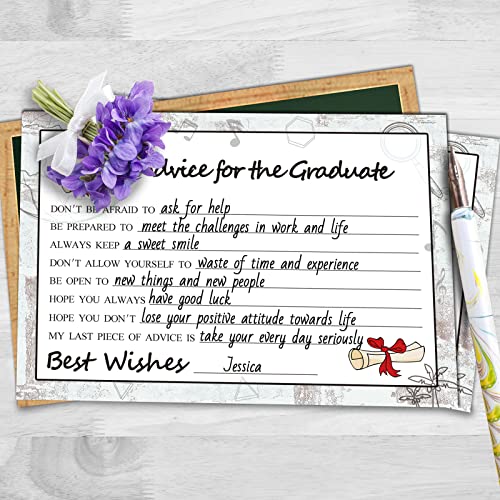 Advice for the Graduate
DON'T BE AFRAID TO ask for help
BE PREPARED TO meet the challenges in work and life
ALWAYS KEEP a sweet smile
DON'T ALLOW YOURSELF TO waste of time and experience
BE OPEN TO new things and new people
HOPE YOU ALWAYS have good luck
HOPE YOU DON'T lose your positive attitude towards life
MY LAST PIECE OF ADVICE IS take your every day seriously
Best Wishes Jessica